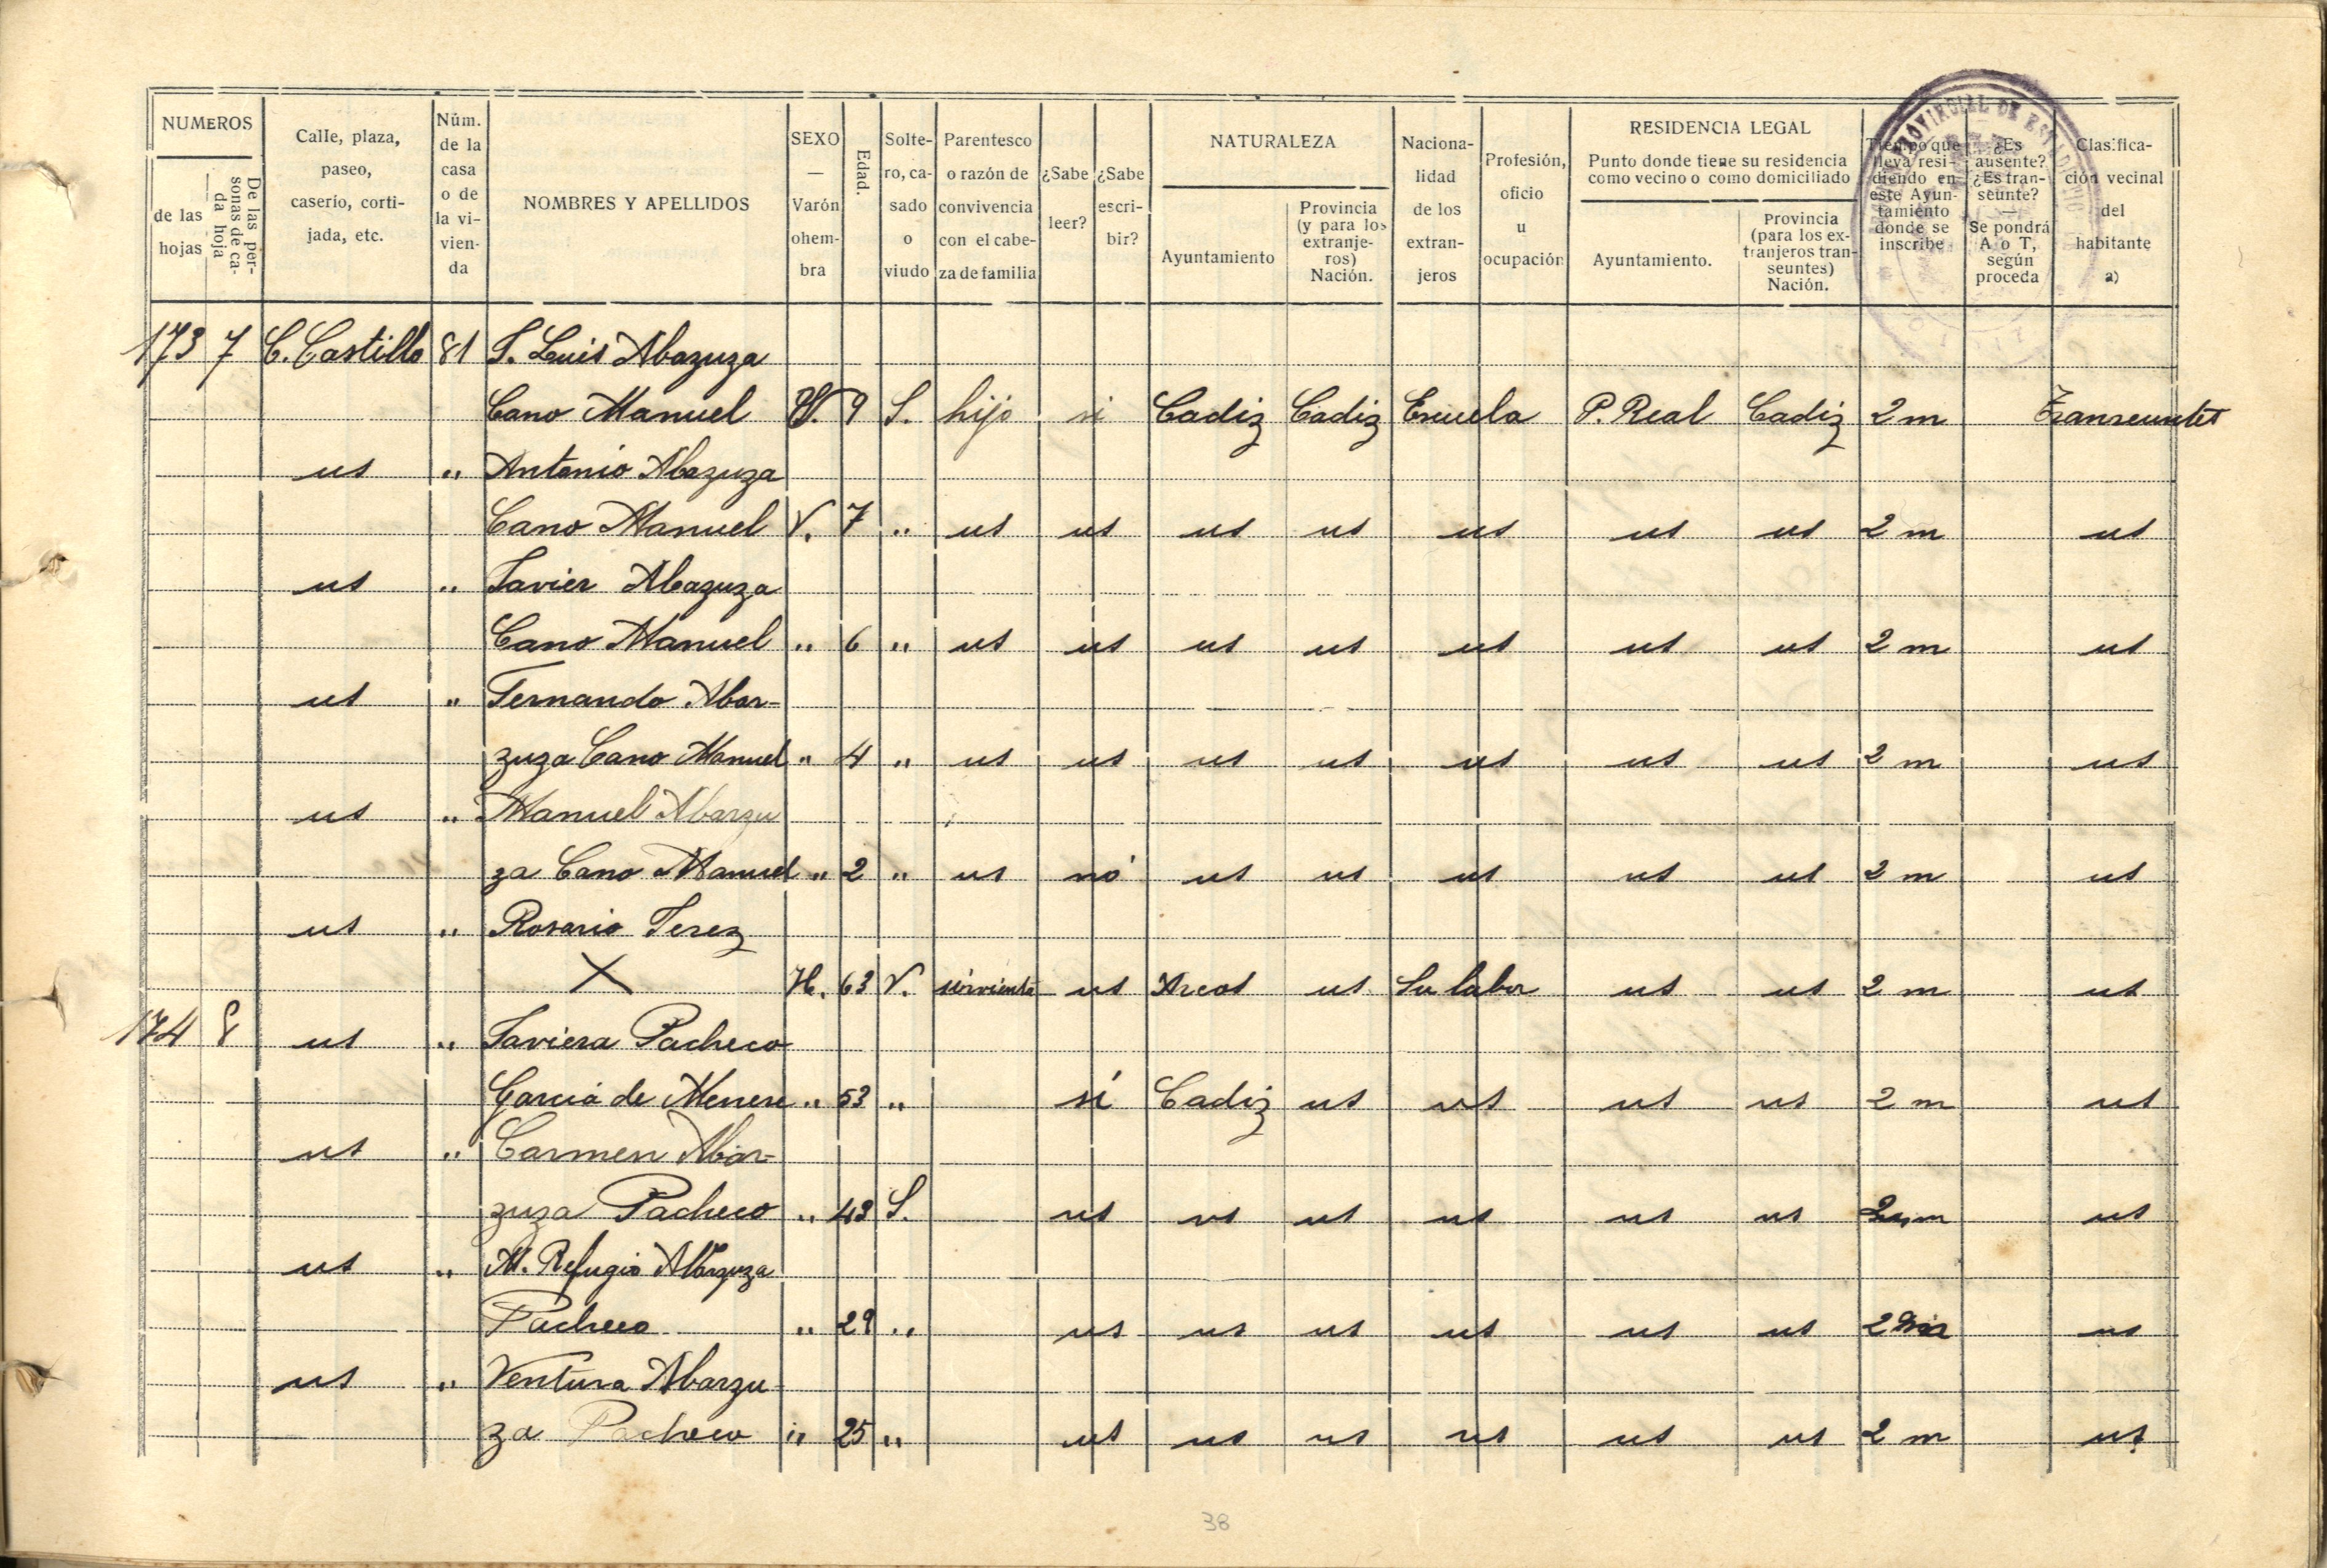 NUMEROS
de las hojas
De las personas de cada hoja
Calle, plaza, paseo, caserio, cortijada, etc.
Núm. de la casa o de la vivienda
NOMBRES Y APELLIDOS
SEXO — Varón o hembra
Edad.
Soltero, casado o viudo
Parentesco o razón de convivencia con el cabeza de familia
¿Sabe leer?
¿Sabe escribir?
NATURALEZA
Ayuntamiento
Provincia (y para los extranjeros) Nación.
Nacionalidad de los extranjeros
Profesión, oficio u ocupación
RESIDENCIA LEGAL
Punto donde tiene su residencia como vecino o como domiciliado
Ayuntamiento.
Provincia (para los extranjeros transeuntes) Nación.
Tiempo que lleva residiendo en este Ayuntamiento donde se inscribe
¿Es ausente? ¿Es transeunte? — Se pondrá A o T, según proceda
Clasificación vecinal del habitante a)
PROVINCIAL DE
173 7 C. Castillo 81 S. Luis Abazuza
Cano Manuel V. 9 S. hijo si Cadiz Cadiz Escuela P. Real Cadiz 2 m Transeuntes
us " Antonio Abazuza
Cano Manuel V. 7 " us us us us us us us 2 m us
us " Javier Abazuza
Cano Manuel " 6 " us us us us us us us 2 m us
us " Fernando Abar-
zuza Cano Manuel " 4 " us us us us us us us 2 m us
us " Manuel Abarzu
za Cano Manuel " 2 " us nó us us us us us 2 m us
us " Rosario Jerez
X H. 63 V. sirvienta us Arcos us Su labor us us 2 m us
174 8 us " Javiera Pacheco
García de Menese " 53 " sí Cadiz us us us us 2 m us
us " Carmen Abar-
zuza Pacheco " 43 S. us us us us us us 2 m us
us " M. Refugio Abarzuza
Pacheco " 29 " us us us us us us 2 us
us " Ventura Abarzu
za Pacheco " 25 " us us us us us us 2 m us
38